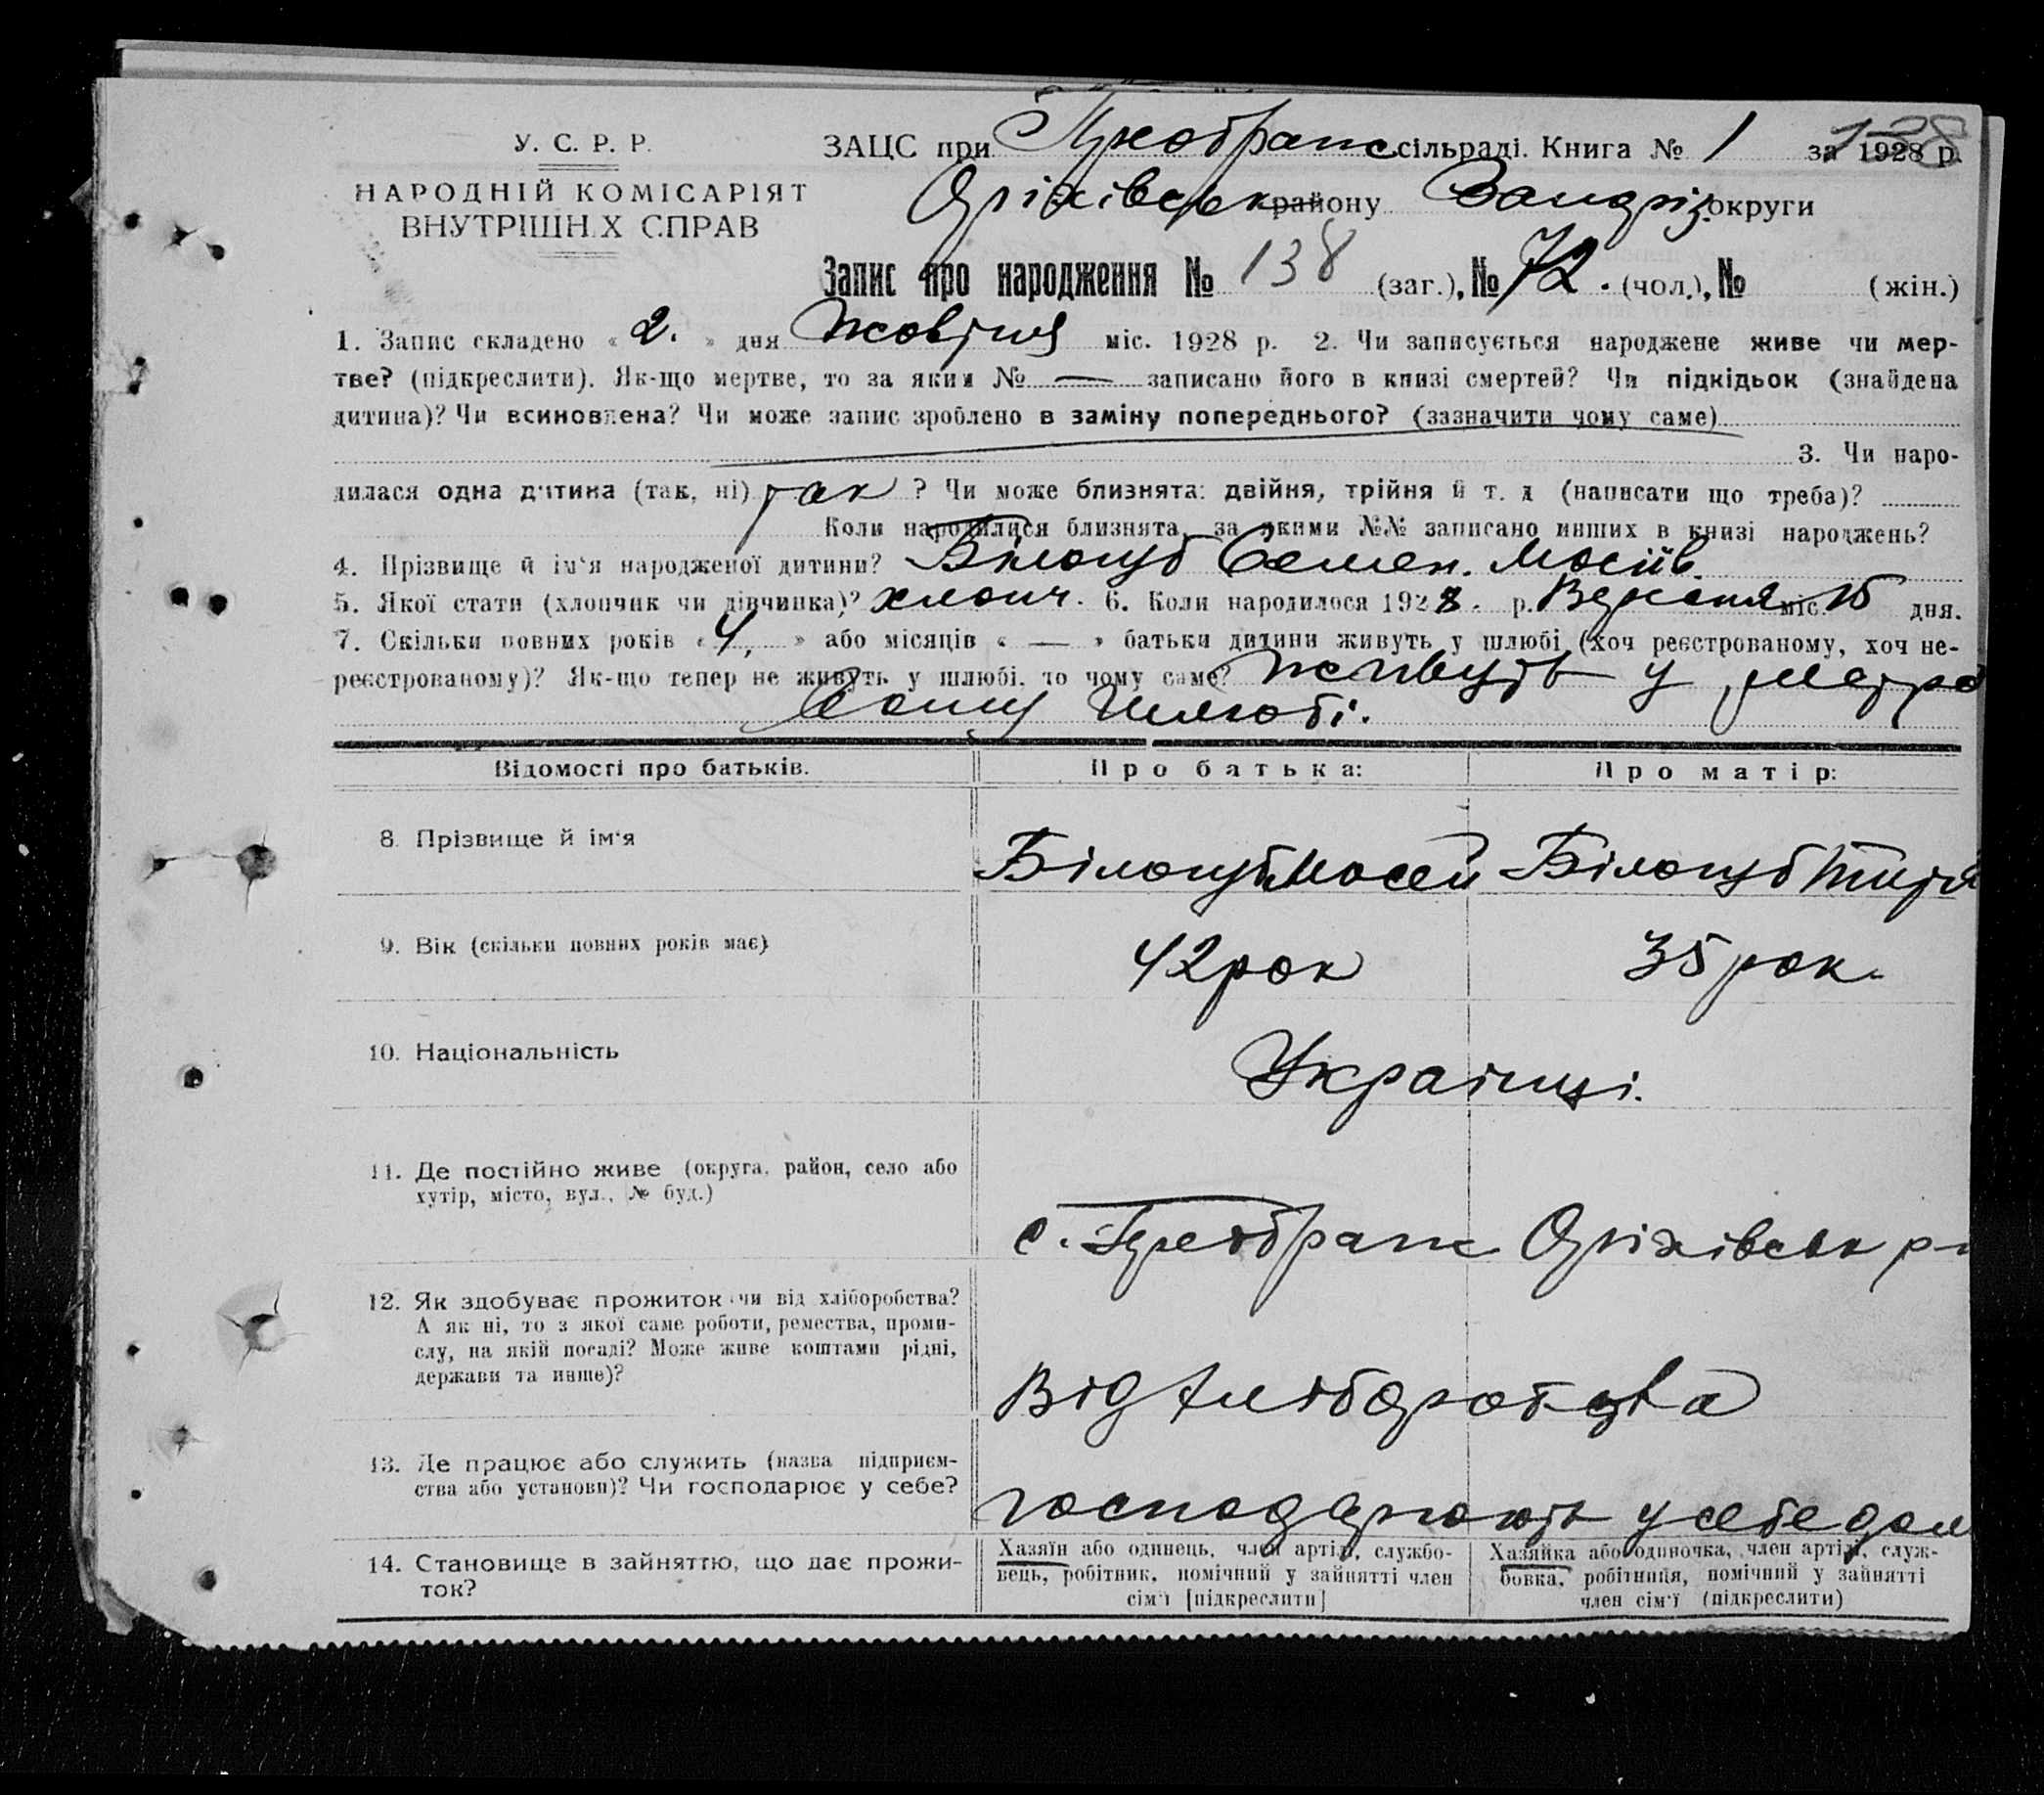 У. С. Р. Р.
НАРОДНІЙ КОМІСАРІЯТ
ВНУТРІШН.Х СПРАВ
ЗАЦС при Преображ сільраді. Книга № 1 за 1928 р. 138
Оріхівськ району Запоріз округи
Запис про народження № 138 (заг.), № 72. (чол.), № (жін.)
1. Запис складено « 2. » дня Жовтня міс. 1928 р. 2. Чи записується народжене живе чи мер-
тве? (підкреслити). Як-що мертве, то за яким № — записано його в книзі смертей? Чи підкідьок (знайдена
дитина)? Чи всиновлена? Чи може запис зроблено в заміну попереднього? (зазначити чому саме)
3. Чи наро-
дилася одна дитина (так, ні) так ? Чи може близнята: двійня, трійня й т. д (написати що треба)?
Коли народилися близнята, за якими №№ записано инших в книзі народжень?
4. Прізвище й ім'я народженої дитини? Білогуб Семен. Мосіїв.
5. Якої стати (хлопчик чи дівчинка)? хлопч. 6. Коли народилося 1928. р. Вересня міс. 15 дня.
7. Скільки повних років « 4, » або місяців « — » батьки дитини живуть у шлюбі (хоч реєстрованому, хоч не-
реєстрованому)? Як-що тепер не живуть у шлюбі, то чому саме? живуть у
шлюбі.
Відомості про батьків. Про батька: Про матір:
8. Прізвище й ім'я Білогуб Мосей Білогуб
9. Вік (скільки повних років має) 42 рок 35 рок.
10. Національність Українці.
11. Де постійно живе (округа, район, село або
хутір, місто, вул., № буд.)
с. Преображ Оріхівськ р-н
12. Як здобуває прожиток чи від хліборобства?
А як ні, то з якої саме роботи, ремества, проми-
слу, на якій посаді? Може живе коштами рідні,
держави та инше)?
Від хліборобства
13. Де працює або служить (назва підприєм-
ства або установи)? Чи господарює у себе?
господарюють у себе дом
14. Становище в зайняттю, що дає прожи-
ток?
Хазяїн або одинець, член артілі, службо-
вець, робітник, помічний у зайнятті член
сім'ї [підкреслити]
Хазяйка або одиночка, член артілі, служ-
бовка, робітниця, помічний у зайнятті
член сім'ї (підкреслити)